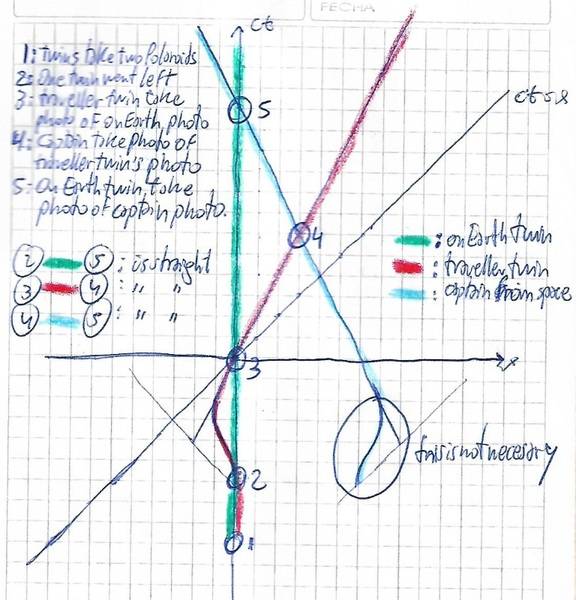 FECHA
ct
1: twins take two Poloroids
2: One twin went left
3: traveller twin take
photo of onEarth photo
4: Captain take photo of
traveller twin's photo
5: On Earth twin, take
photo of captain photo.
5
ct=x
4
: onEarth twin
: traveller twin
: captain from space
2 5 : is straight
3 4 : " "
4 5 : " "
x
3
this is not necesary
2
1